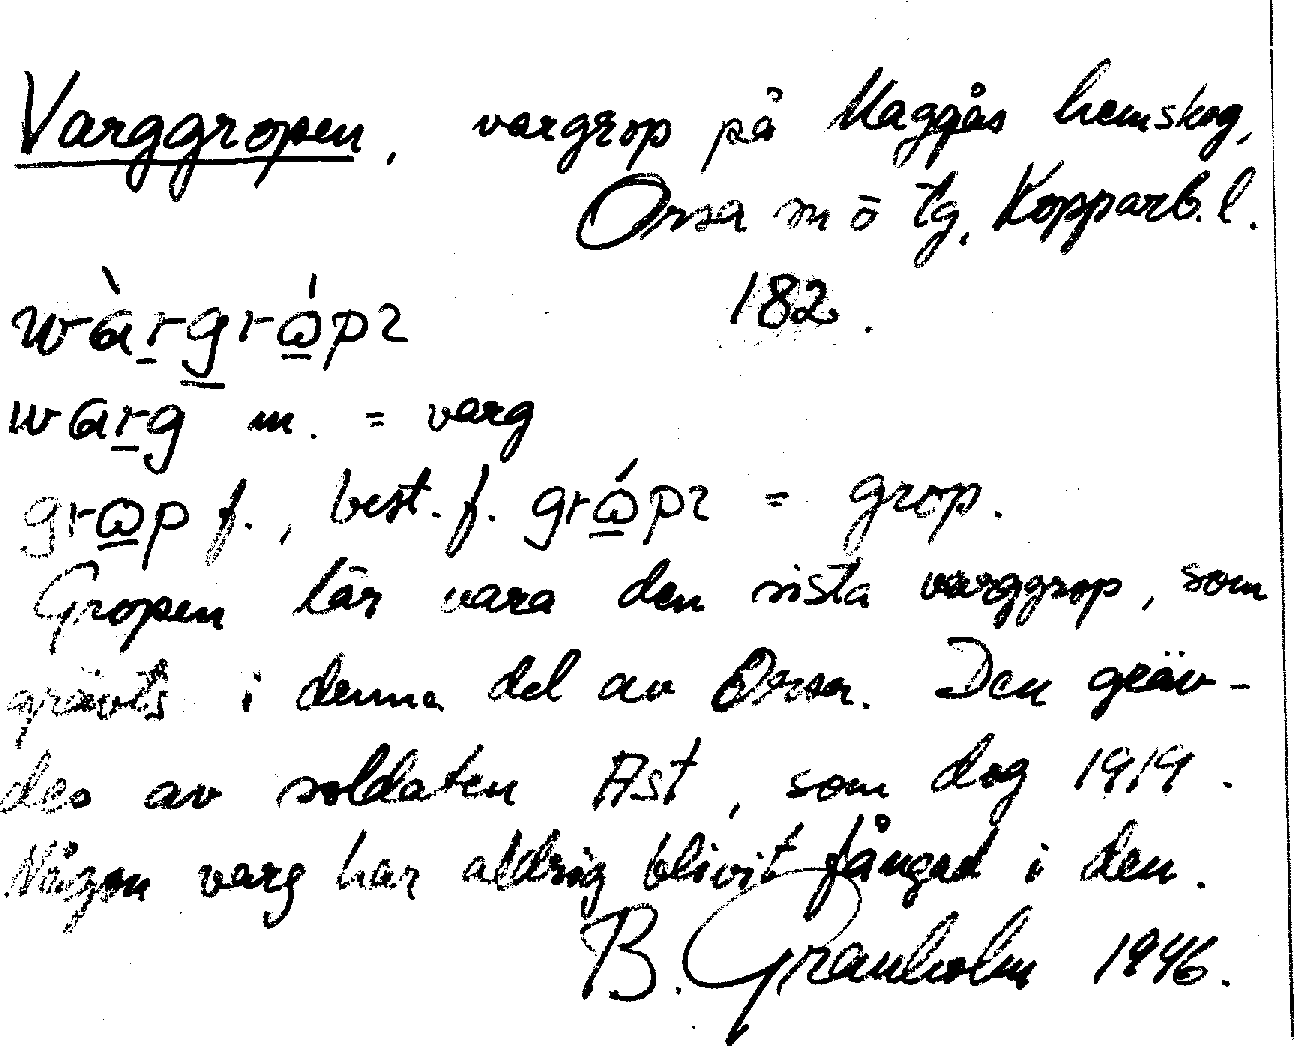 Varggropen, vargrop på Maggås hemskog,
Orsa sn o tg, Kopparb. l.
182.
wàrgrópɿ
warg m. = varg
grop f., best. f. grópɿ = grop.
Gropen lär vara den sista varggrop, som
grävts i denna del av Orsa. Den gräv-
des av soldaten Ast, som dog 1919.
Någon varg har aldrig blivit fångad i den.
B. Granholm 1946.